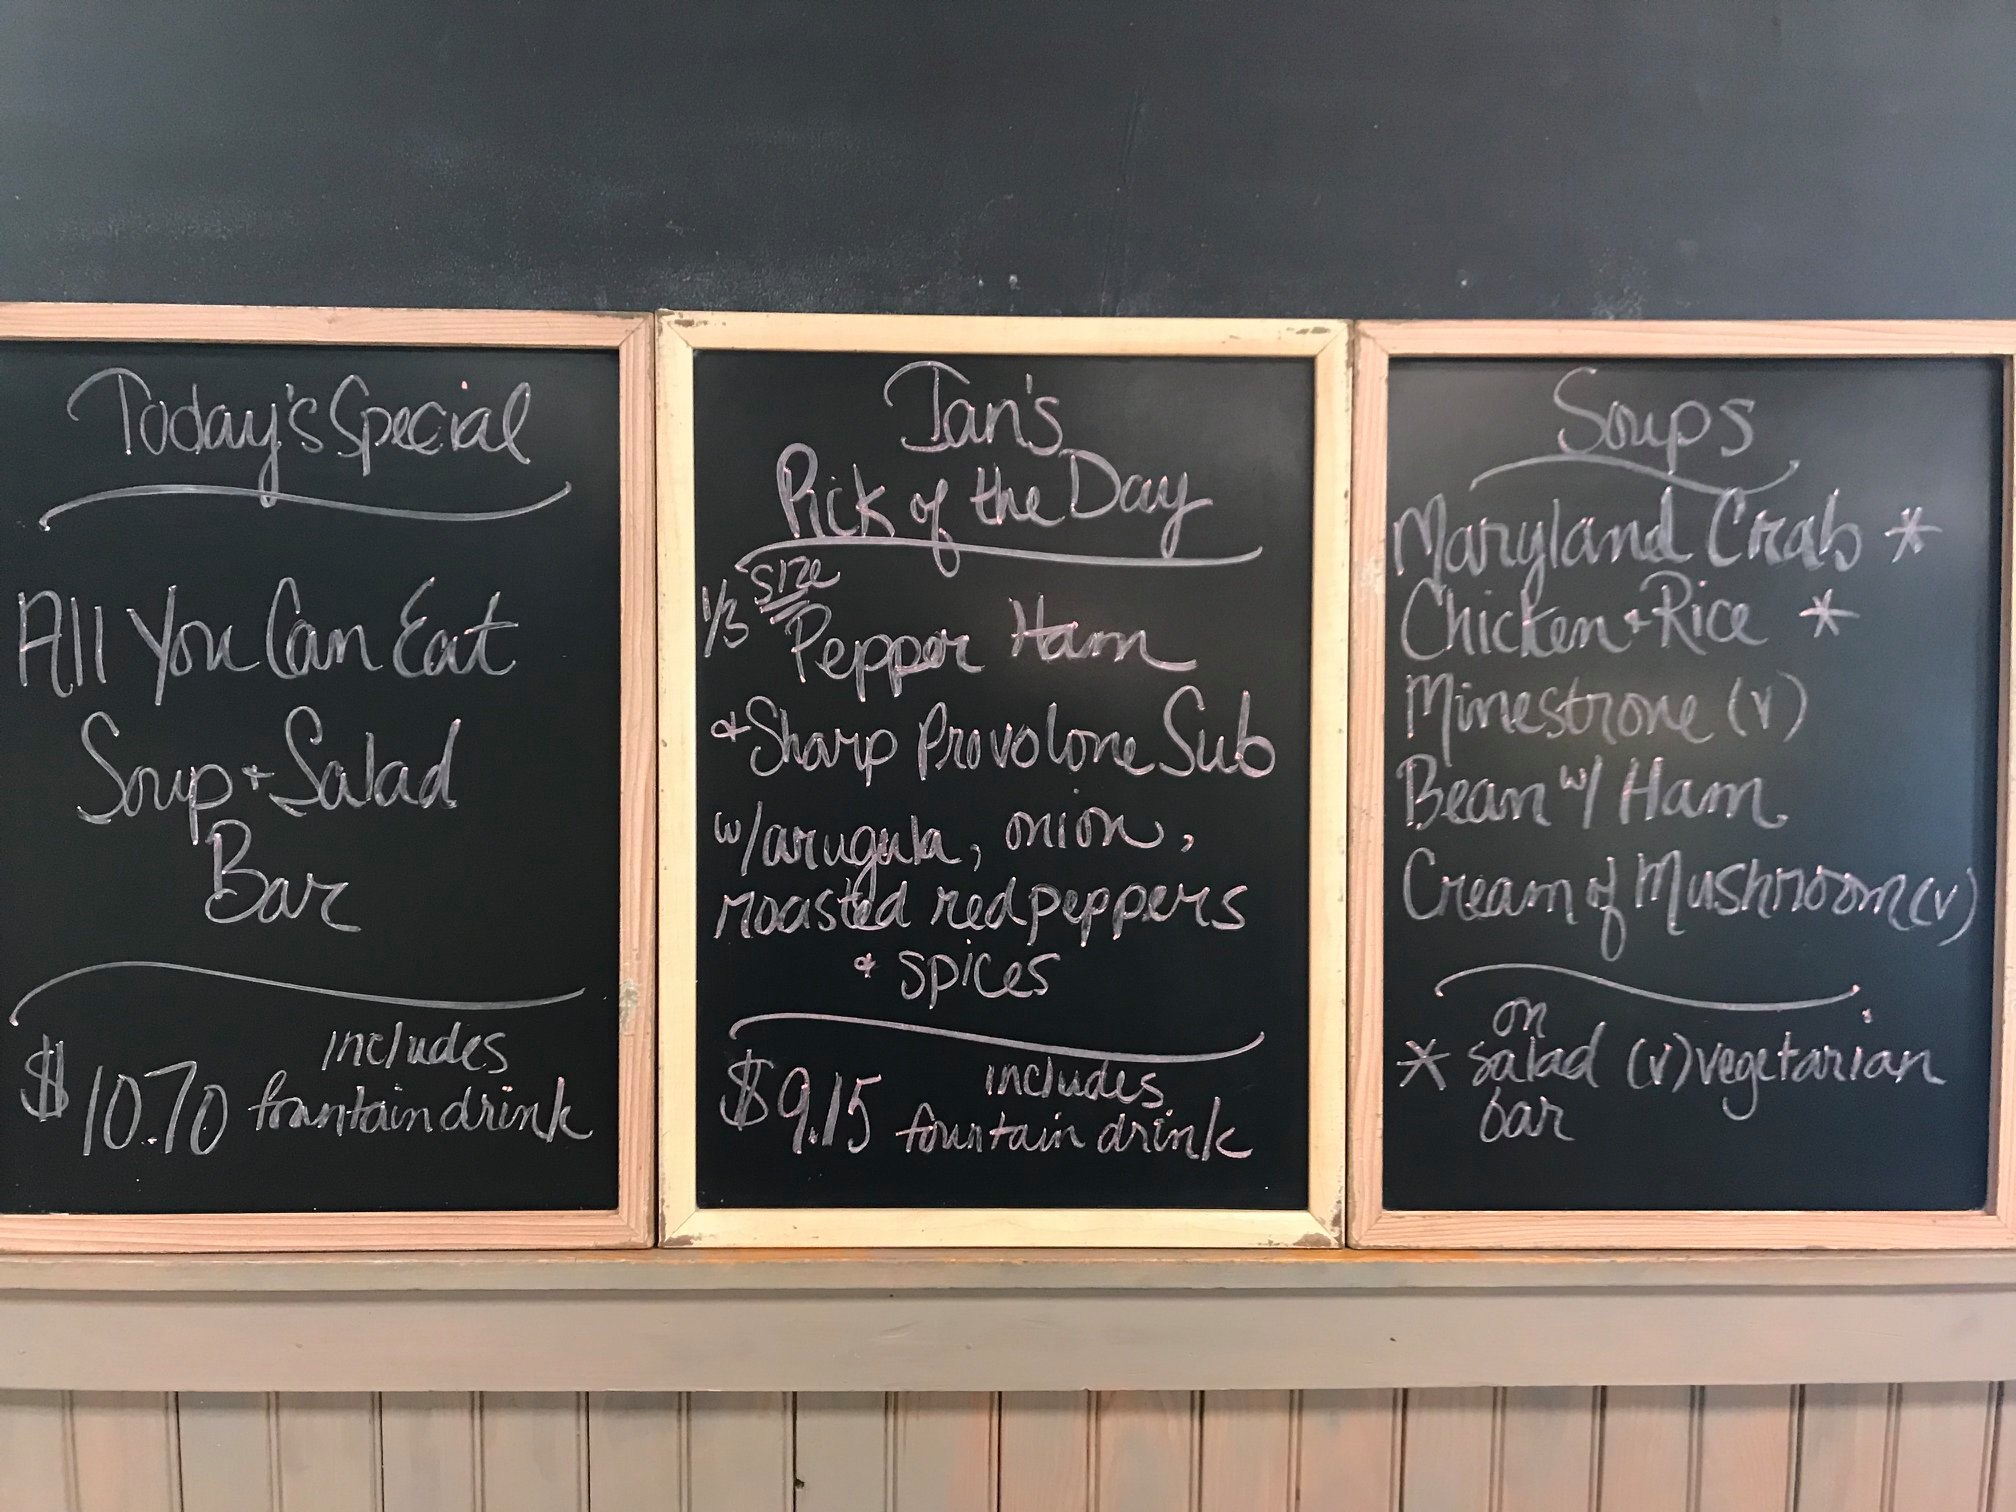 Today's Special
All You Can Eat
Soup + Salad
Bar
$10.70 includes
fountain drink
Ian's
Pick of the Day
1/3 size
Pepper Ham
& Sharp Provolone Sub
w/arugula, onion,
roasted red peppers
& spices
$9.15 includes
fountain drink
Soups
Maryland Crab *
Chicken + Rice *
Minestrone (v)
Bean w/ Ham
Cream of Mushroom (v)
* on
salad (v) vegetarian
bar